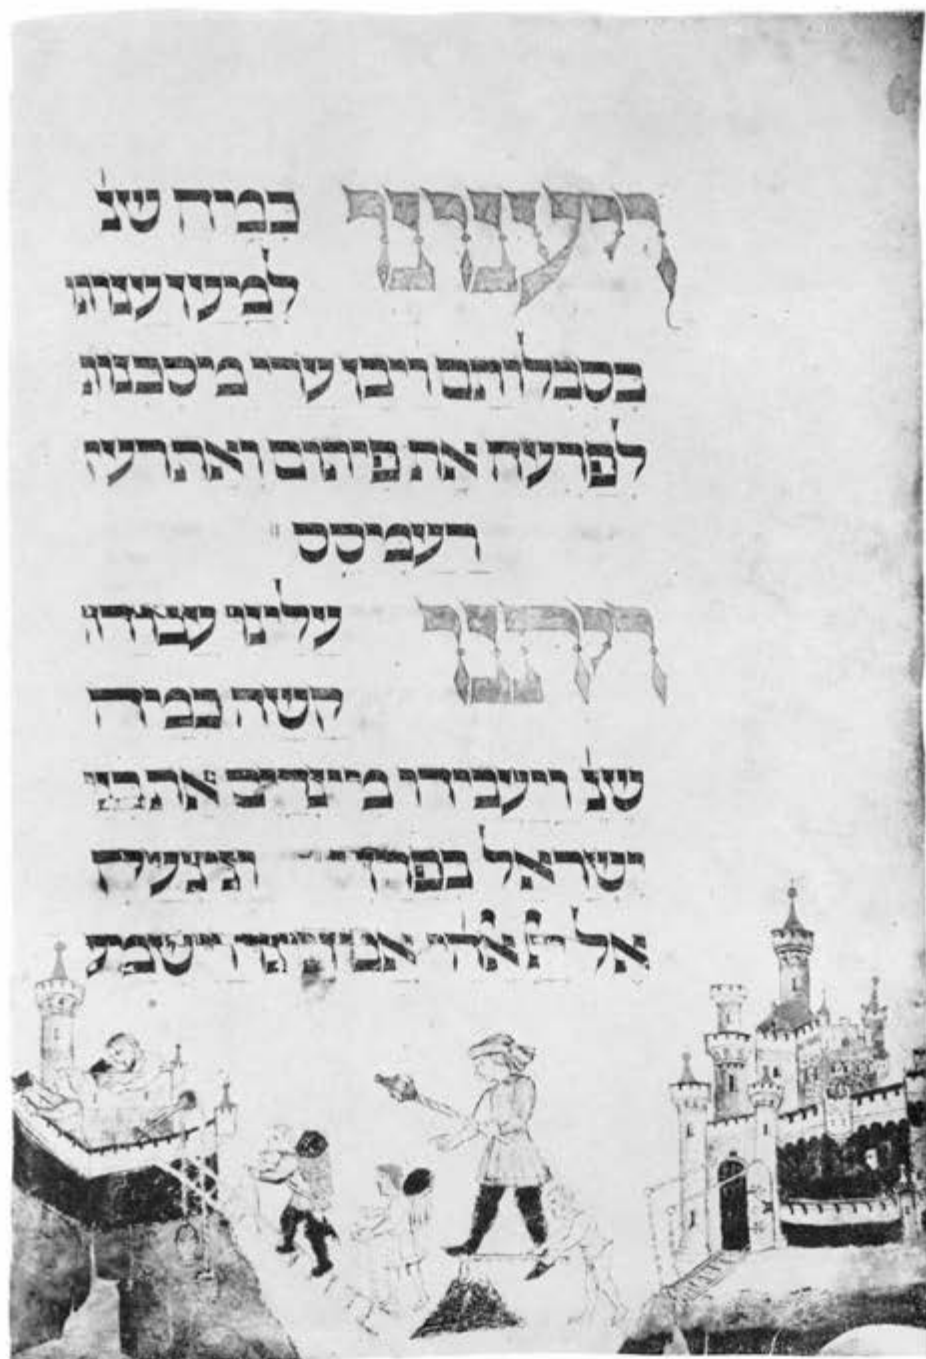 ויענונו כמיה שנ'
למיען ענותו
בסבלותם ויבן ערי מיסכנות
לפרעה את פיתום ואת
רעמיסס
ויתנו עלינו עבודה
קשה כמיה
שנ' ויעבידו מיצרים את בני
ישראל בפרך ונצעק
אל אבותינו וישמע